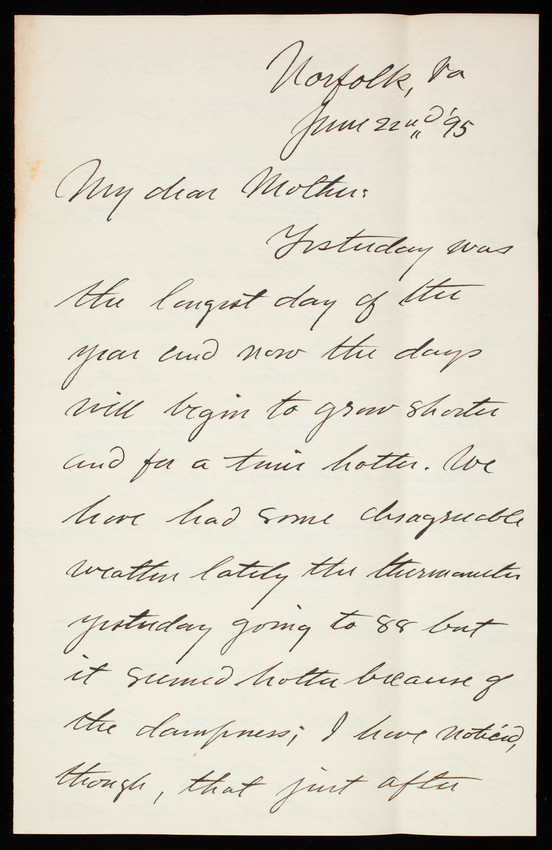 Norfolk, Va
June 22nd '95
My dear Mother:
Yesterday was
the longest day of the
year and now the days
will begin to grow shorter
and for a time hotter. We
have had some disagreeable
weather lately the thermometer
yesterday going to 88 but
it seemed hotter because of
the dampness; I have noticed,
though, that just after